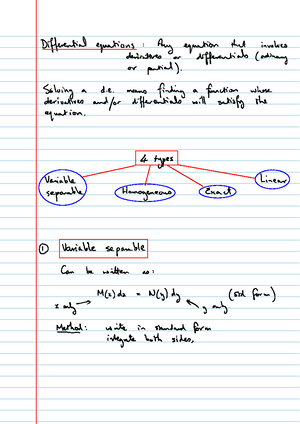 Differential equations : Any equation that involves
derivatives or differentials (ordinary
or partial).
Solving a d.e. means finding a function whose
derivatives and/or differentials will satisfy the
equation.
4 types
Variable
separable
Homogeneous
Exact
Linear
① Variable separable
Can be written as:
M(x)dx = N(y)dy (std form)
x only
y only
Method: write in standard form
integrate both sides,